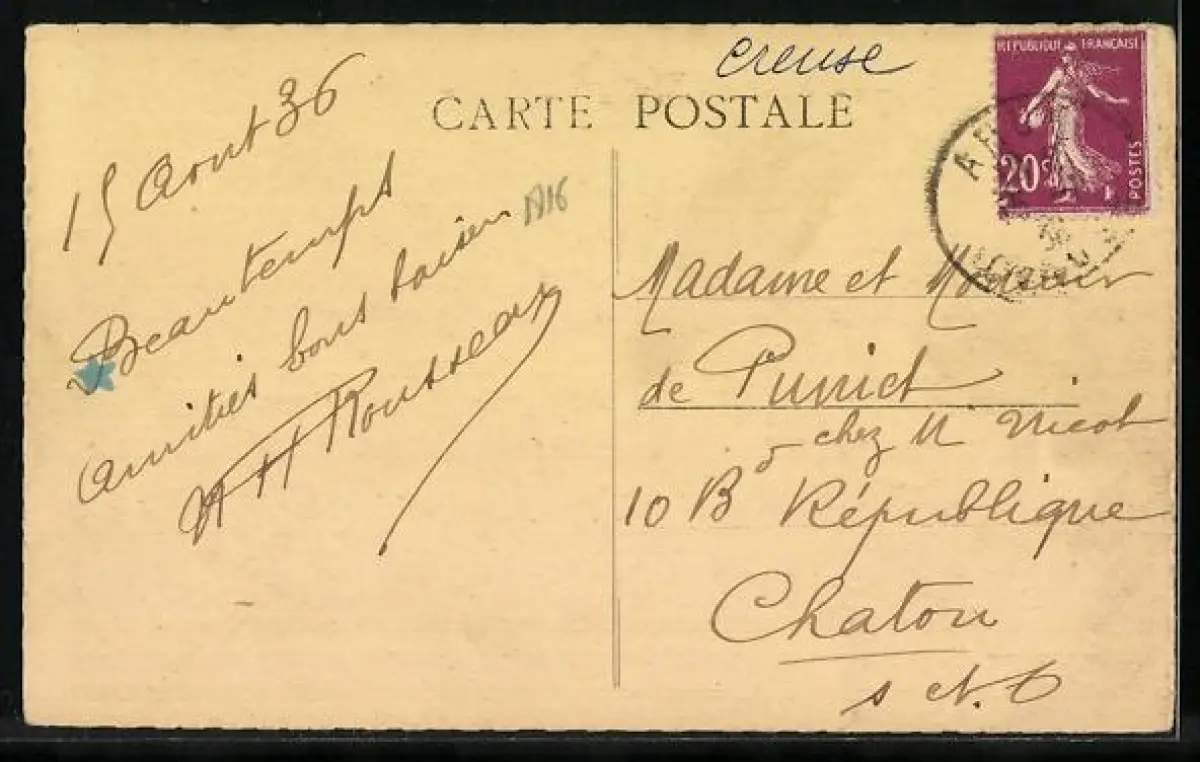 creuse
CARTE POSTALE
RÉPUBLIQUE FRANÇAISE
20c
POSTES
15 Aout 36
Beau temps
amitiés bons baisers
Rousseau
A16
Madame et Monsieur
de Puniet
chez M Nicot
10 Bd République
Chatou
s et O